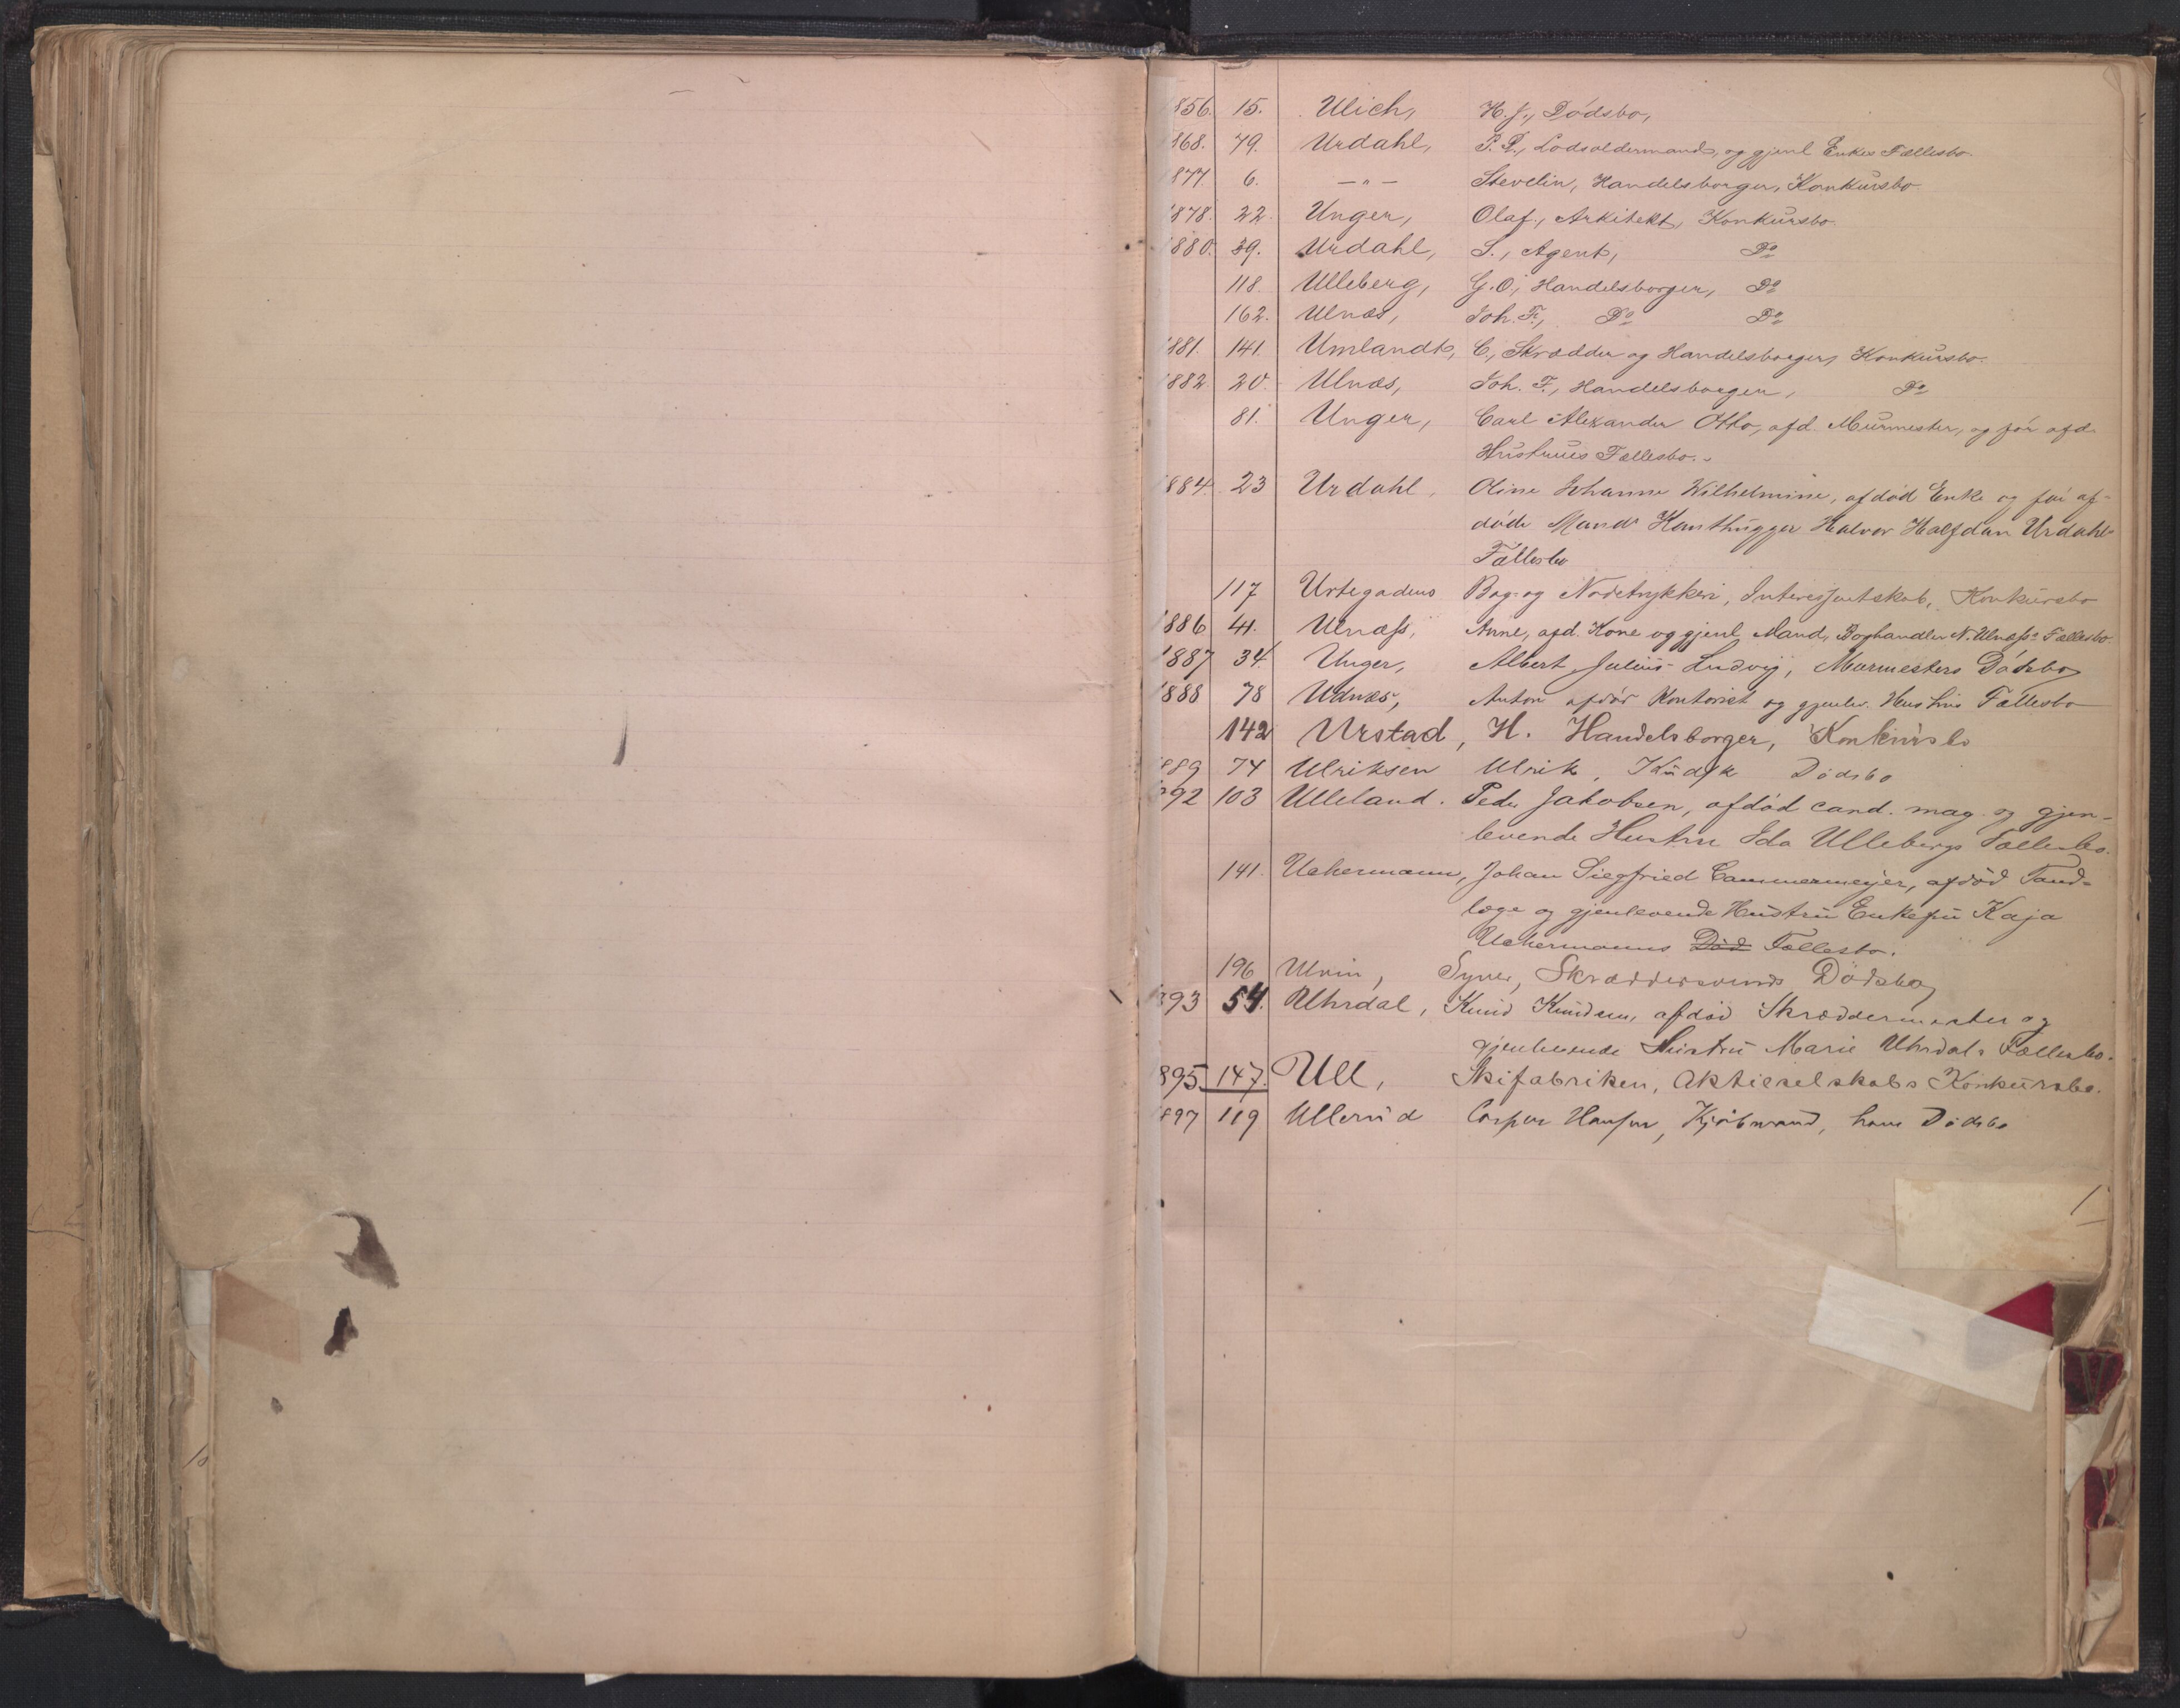 1856. 15. Ulich, H. J., Dödsbo,
1868. 79. Urdahl, P. P., Lodsoldermands, og gjenl Enkes Fællesbo
1877. 6. —〃— Stevelin, Handelsborger, Konkursbo
1878. 22. Unger, Olaf, Arkitekt, Konkursbo.
1880. 39. Urdahl, S., Agent, Do
118. Ulleberg, G. O., Handelsborger, Do
162. Ulnæs, Joh. F., Do Do
1881. 141. Umlandt, C., Skrædder og Handelsborger, Konkursbo.
1882. 20. Ulnæs, Joh. F., Handelsborger, Do
81. Unger, Carl Alexander Otto, afd. Murmester, og før afd.
Hustrues Fællesbo.
1884. 23 Urdahl, Oline Johanne Wilhelmine, afdød Enke og før af-
døde Mands Kunsthugger Halvor Halfdan Urdahls
Fællesbo
117 Urtegadens Bog- og Nodetrykkeri, Interessentskab, Konkursbo
1886 41. Ulnæss, Anne, afd. Kone og gjenl Mand, Boghandler N. Ulnæss's Fællesbo.
1887 34. Unger, Albert Julius Ludvig, Murmesters Dödsbo
1888 78 Udnæs, Anton afdød Kontorist og gjenlev. Hustrus Fællesbo
142 Urstad, H. Handelsborger, Konkursbo
1889 74 Ulriksen Ulrik, Kudsk Dödsbo
1892 103 Ulleland. Peder Jakobsen, afdød cand. mag. og gjen-
levende Hustru Ida Ullebergs Fællesbo.
141. Uchermann, Johan Siegfried Cammermeyer, afdød Tand-
læge og gjenlevende Hustru Enkefru Kaja
Uchermanns Död Fællesbo.
196 Ulvin, Syver, Skræddersvends Dödsbo
1893 54. Uhrdal, Knud Knudsen, afdød Skræddermester og
gjenlevende Hustru Marie Uhrdals Fællesbo.
1895. 147. Ull, Skifabriken, Aktieselskabs Konkursbo.
1897 119 Ullerud Casper Hansen, Kjøbmand, hans Dödsbo